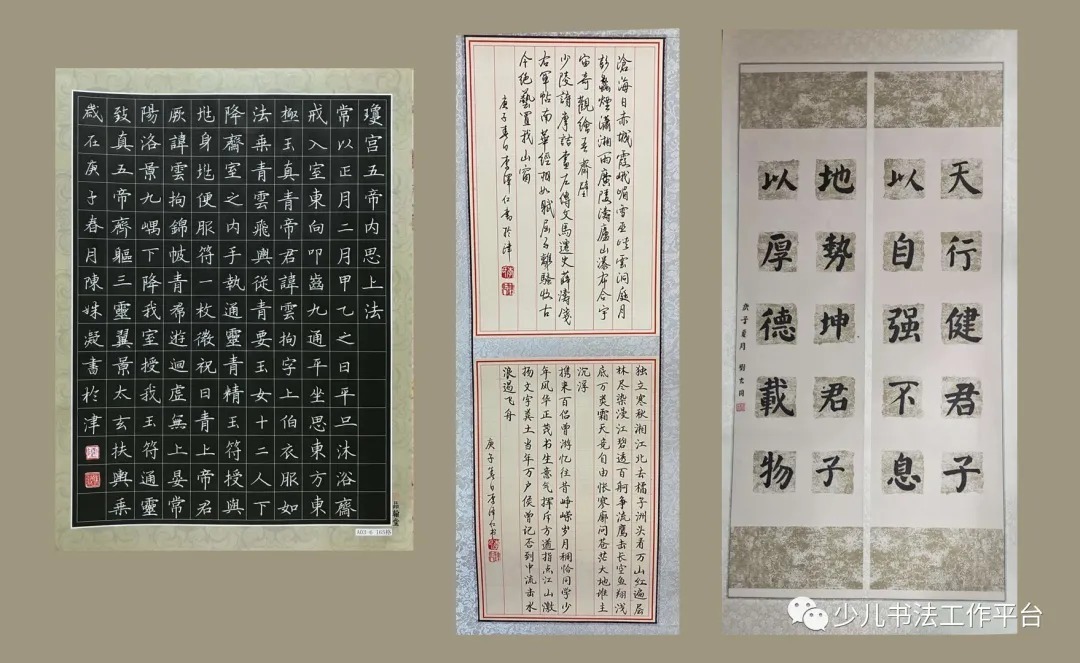 瓊宮五帝內思上法
常以正月二月甲乙之日平旦沐浴齋
戒入室東向叩齒九通平坐思東方東
極玉真青帝君諱雲拘字上伯衣服如
法乗青雲飛輿從青要玉女十二人下
降齋室之內手執通靈青精玉符授與
地身地便服符一枚微祝曰青上帝君
厥諱雲拘錦帔青帬遊迴虛無上晏常
陽洛景九嵎下降我室授我玉符通靈
致真五帝齊軀三靈翼景太玄扶輿乗
歲在庚子春月陳姝凝書於津
A03-6 185格
滄海日赤城霞峨嵋雪巫峽雲洞庭月
彭蠡煙瀟湘雨廣陵濤廬山瀑布合宇
宙奇觀繪吾齋壁
少陵詩摩詰畫左傳文馬遷史薛濤箋
右軍帖南華經相如賦屈子離騷收古
今絕藝置我山窗
庚子春日李澤仁書於津
独立寒秋湘江北去橘子洲头看万山红遍层
林尽染漫江碧透百舸争流鹰击长空鱼翔浅
底万类霜天竞自由怅寥廓问苍茫大地谁主
沉浮
携来百侣曾游忆往昔峥嵘岁月稠恰同学少
年风华正茂书生意气挥斥方遒指点江山激
扬文字粪土当年万户侯曾记否到中流击水
浪遏飞舟
庚子春日李泽仁书
天行健君子
以自强不息
地勢坤君子
以厚德載物
庚子夏月
少儿书法工作平台